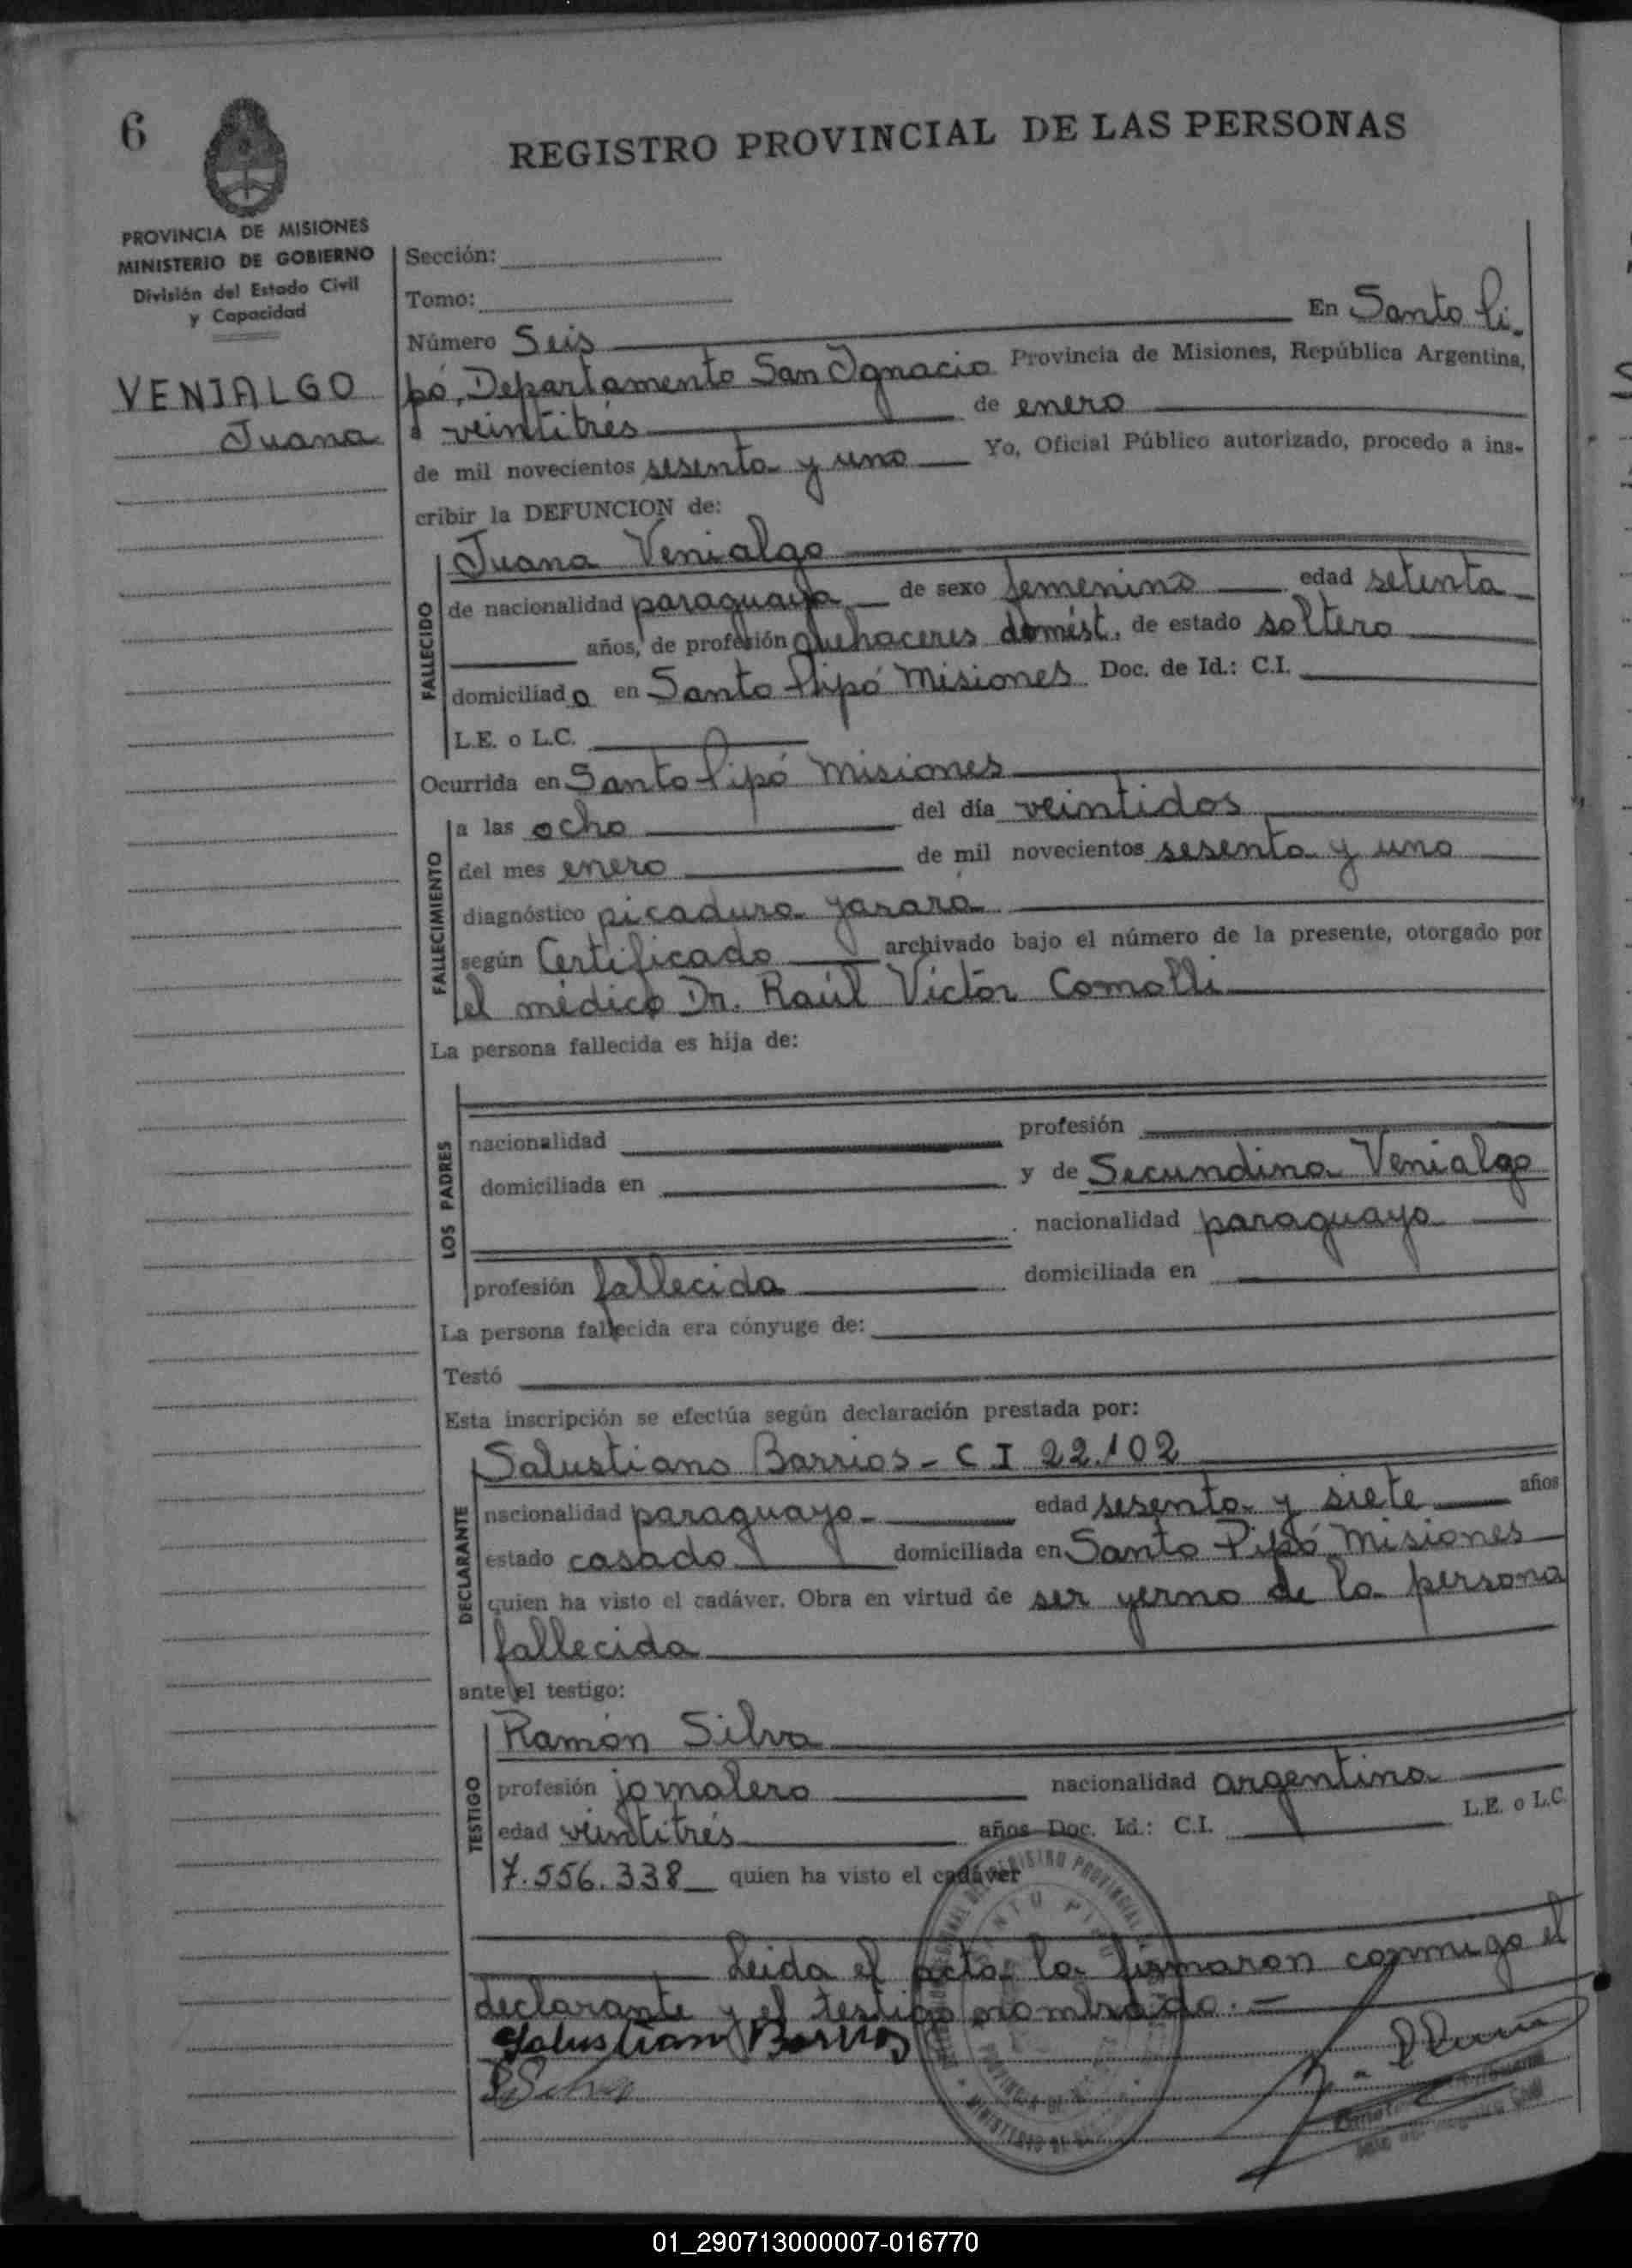 6
REGISTRO PROVINCIAL DE LAS PERSONAS
PROVINCIA DE MISIONES
MINISTERIO DE GOBIERNO
División del Estado Civil
y Capacidad
VENIALGO
Juana
Sección:
Tomo:
Número Seis En Santo Pi-
pó, Departamento San Ignacio Provincia de Misiones, República Argentina,
a veintitrés de enero
de mil novecientos sesenta y uno Yo, Oficial Público autorizado, procedo a ins-
cribir la DEFUNCION de:
FALLECIDO
Juana Venialgo
de nacionalidad paraguaya de sexo femenino edad setenta
años, de profesión quehaceres domést. de estado soltera
domiciliada en Santo Pipó Misiones Doc. de Id.: C.I.
L.E. o L.C.
Ocurrida en Santo Pipó Misiones
FALLECIMIENTO
a las ocho del día veintidos
del mes enero de mil novecientos sesenta y uno
diagnóstico picadura yarará
según Certificado archivado bajo el número de la presente, otorgado por
el médico Dr. Raúl Víctor Comolli
La persona fallecida es hija de:
LOS PADRES
nacionalidad profesión
domiciliada en y de Secundina Venialgo
nacionalidad paraguaya
profesión fallecida domiciliada en
La persona fallecida era cónyuge de:
Testó
Esta inscripción se efectúa según declaración prestada por:
DECLARANTE
Salustiano Barrios - C I 22.102
nacionalidad paraguayo - edad sesenta y siete años
estado casado domiciliada en Santo Pipó Misiones
quien ha visto el cadáver. Obra en virtud de ser yerno de la persona
fallecida
ante el testigo:
TESTIGO
Ramón Silva
profesión jornalero nacionalidad argentina
edad veintitrés años Doc. Id.: C.I. L.E. o L.C.
7.556.338 quien ha visto el cadáver
Leida el acta la firmaron conmigo el
declarante y el testigo nombrado. -
Salustiano Barrios
RSilva
01_290713000007-016770